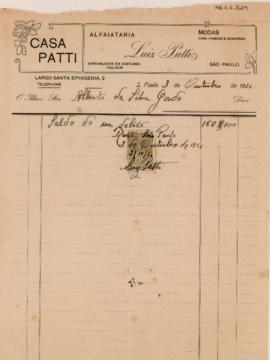 CASA PATTI
ALFAIATARIA
Luiz Patti
ESPECIALISTA EM COSTUMES TAILLEUR
MODAS
PARA HOMENS E SENHORAS
SÃO PAULO
LARGO SANTA EPHIGENIA, 2
TELEPHONE
S. Paulo 3 de Outubro de 192
O Illmo. Snr. Alberto da Silva Gordo Deve
Saldo do seu debito 150$000
São Paulo
3 de Outubro de 192
Luiz Patti